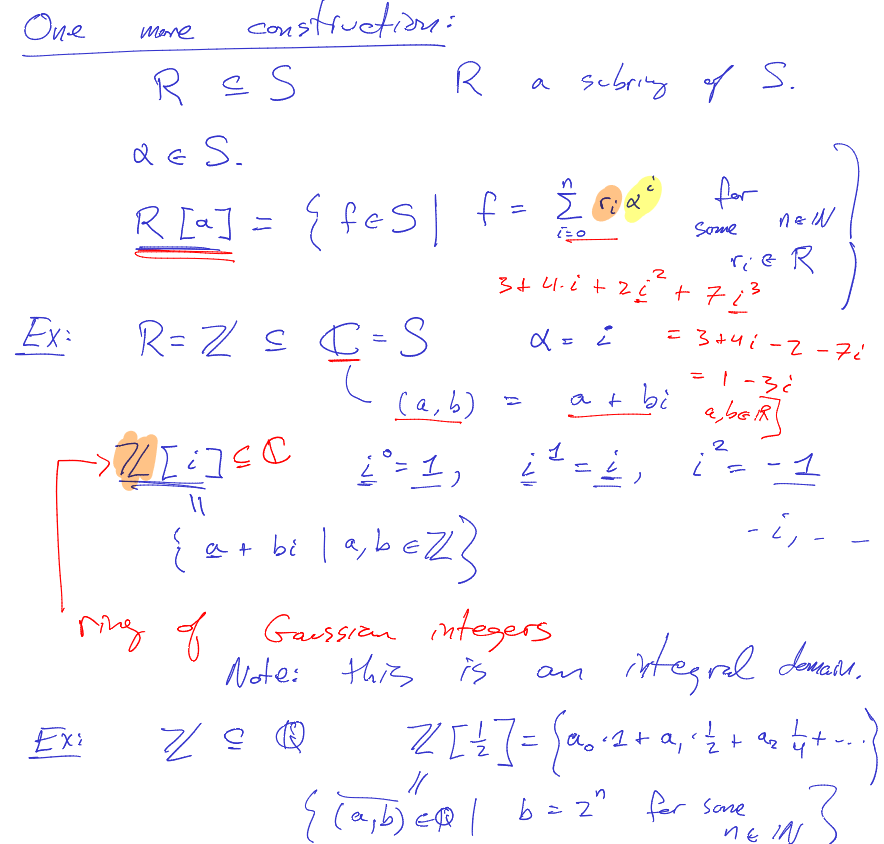 One more construction:
R ⊆ S R a subring of S.
α ∈ S.
R[α] = { f ∈ S | f = \sum_{i=0}^{n} r_i α^i for some n ∈ ℕ r_i ∈ R }
3 + 4·i + 2i^2 + 7i^3
Ex: R = ℤ ⊆ ℂ = S α = i = 3 + 4i - 2 - 7i
= 1 - 3i
(a,b) = a + bi a,b ∈ ℝ]
ℤ[i] ⊆ ℂ i^0 = 1, i^1 = i, i^2 = -1
||
{ a + bi | a, b ∈ ℤ } -i, - -
ring of Gaussian integers
Note: this is an integral domain.
Ex: ℤ ⊆ ℚ ℤ[1/2] = { a_0·1 + a_1·1/2 + a_2 1/4 + ... }
||
{ \overline{(a,b)} ∈ ℚ | b = 2^n for some n ∈ ℕ }